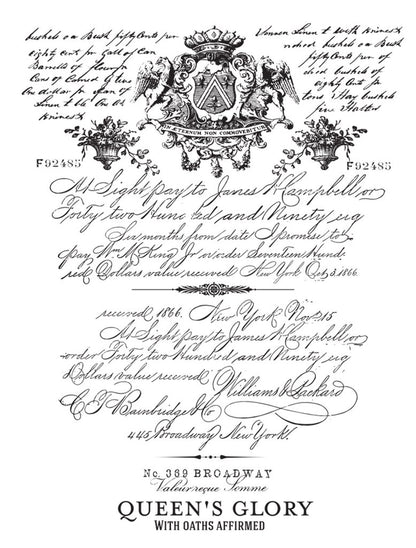 bushels on Bush fifty Cents per
eighty cent for Gall of Can
Barrells of flour for
Cons of Colored
for Span of
Linen t
Linen t with
on Bush
fifty Cents per
bushels of
eighty Cent for
Hay bushels
five
IN ÆTERNUM NON COMMOVEBITUR
F92485
F92485
At Sight pay to James W Campbell or
Forty two Hundred and Ninety eig
Six months from date I promise to
pay Wm McKing Jr or order Seventeen Hund
red Dollars value received New York Oct 3. 1866.
received 1866. New York Nov. 15
At Sight pay to James W Campbell or
order Forty two Hundred and Ninety eig
Dollars value received Williams & Packard
C. T. Bainbridge & Co
445 Broadway New York.
No. 389 BROADWAY
Valeurreçue Somme
QUEEN'S GLORY
WITH OATHS AFFIRMED